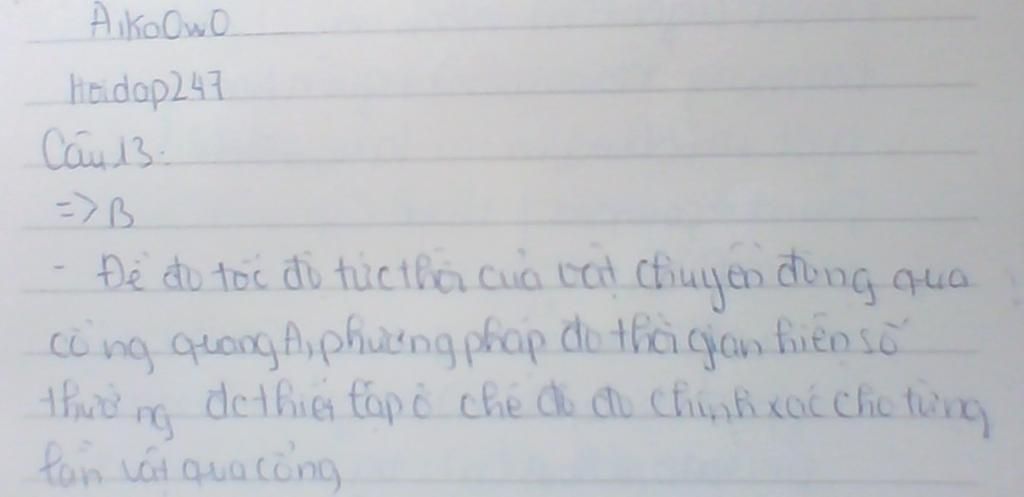 AikoOwO
Hoidap247
Câu 13:
=> B
- Để đo tốc độ tức thời của vật chuyển động qua
cổng quang A, phương pháp đo thời gian hiện số
thường đc thiết lập ở chế độ đo chính xác cho từng
lần vật qua cổng